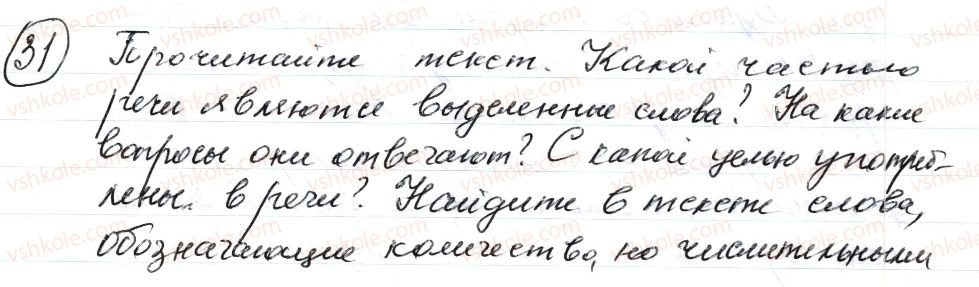 31 Прочитайте текст. Какой частью
речи являются выделенные слова? На какие
вопросы они отвечают? С какой целью употреб-
лены в речи? Найдите в тексте слова,
обозначающие количество, но числительными